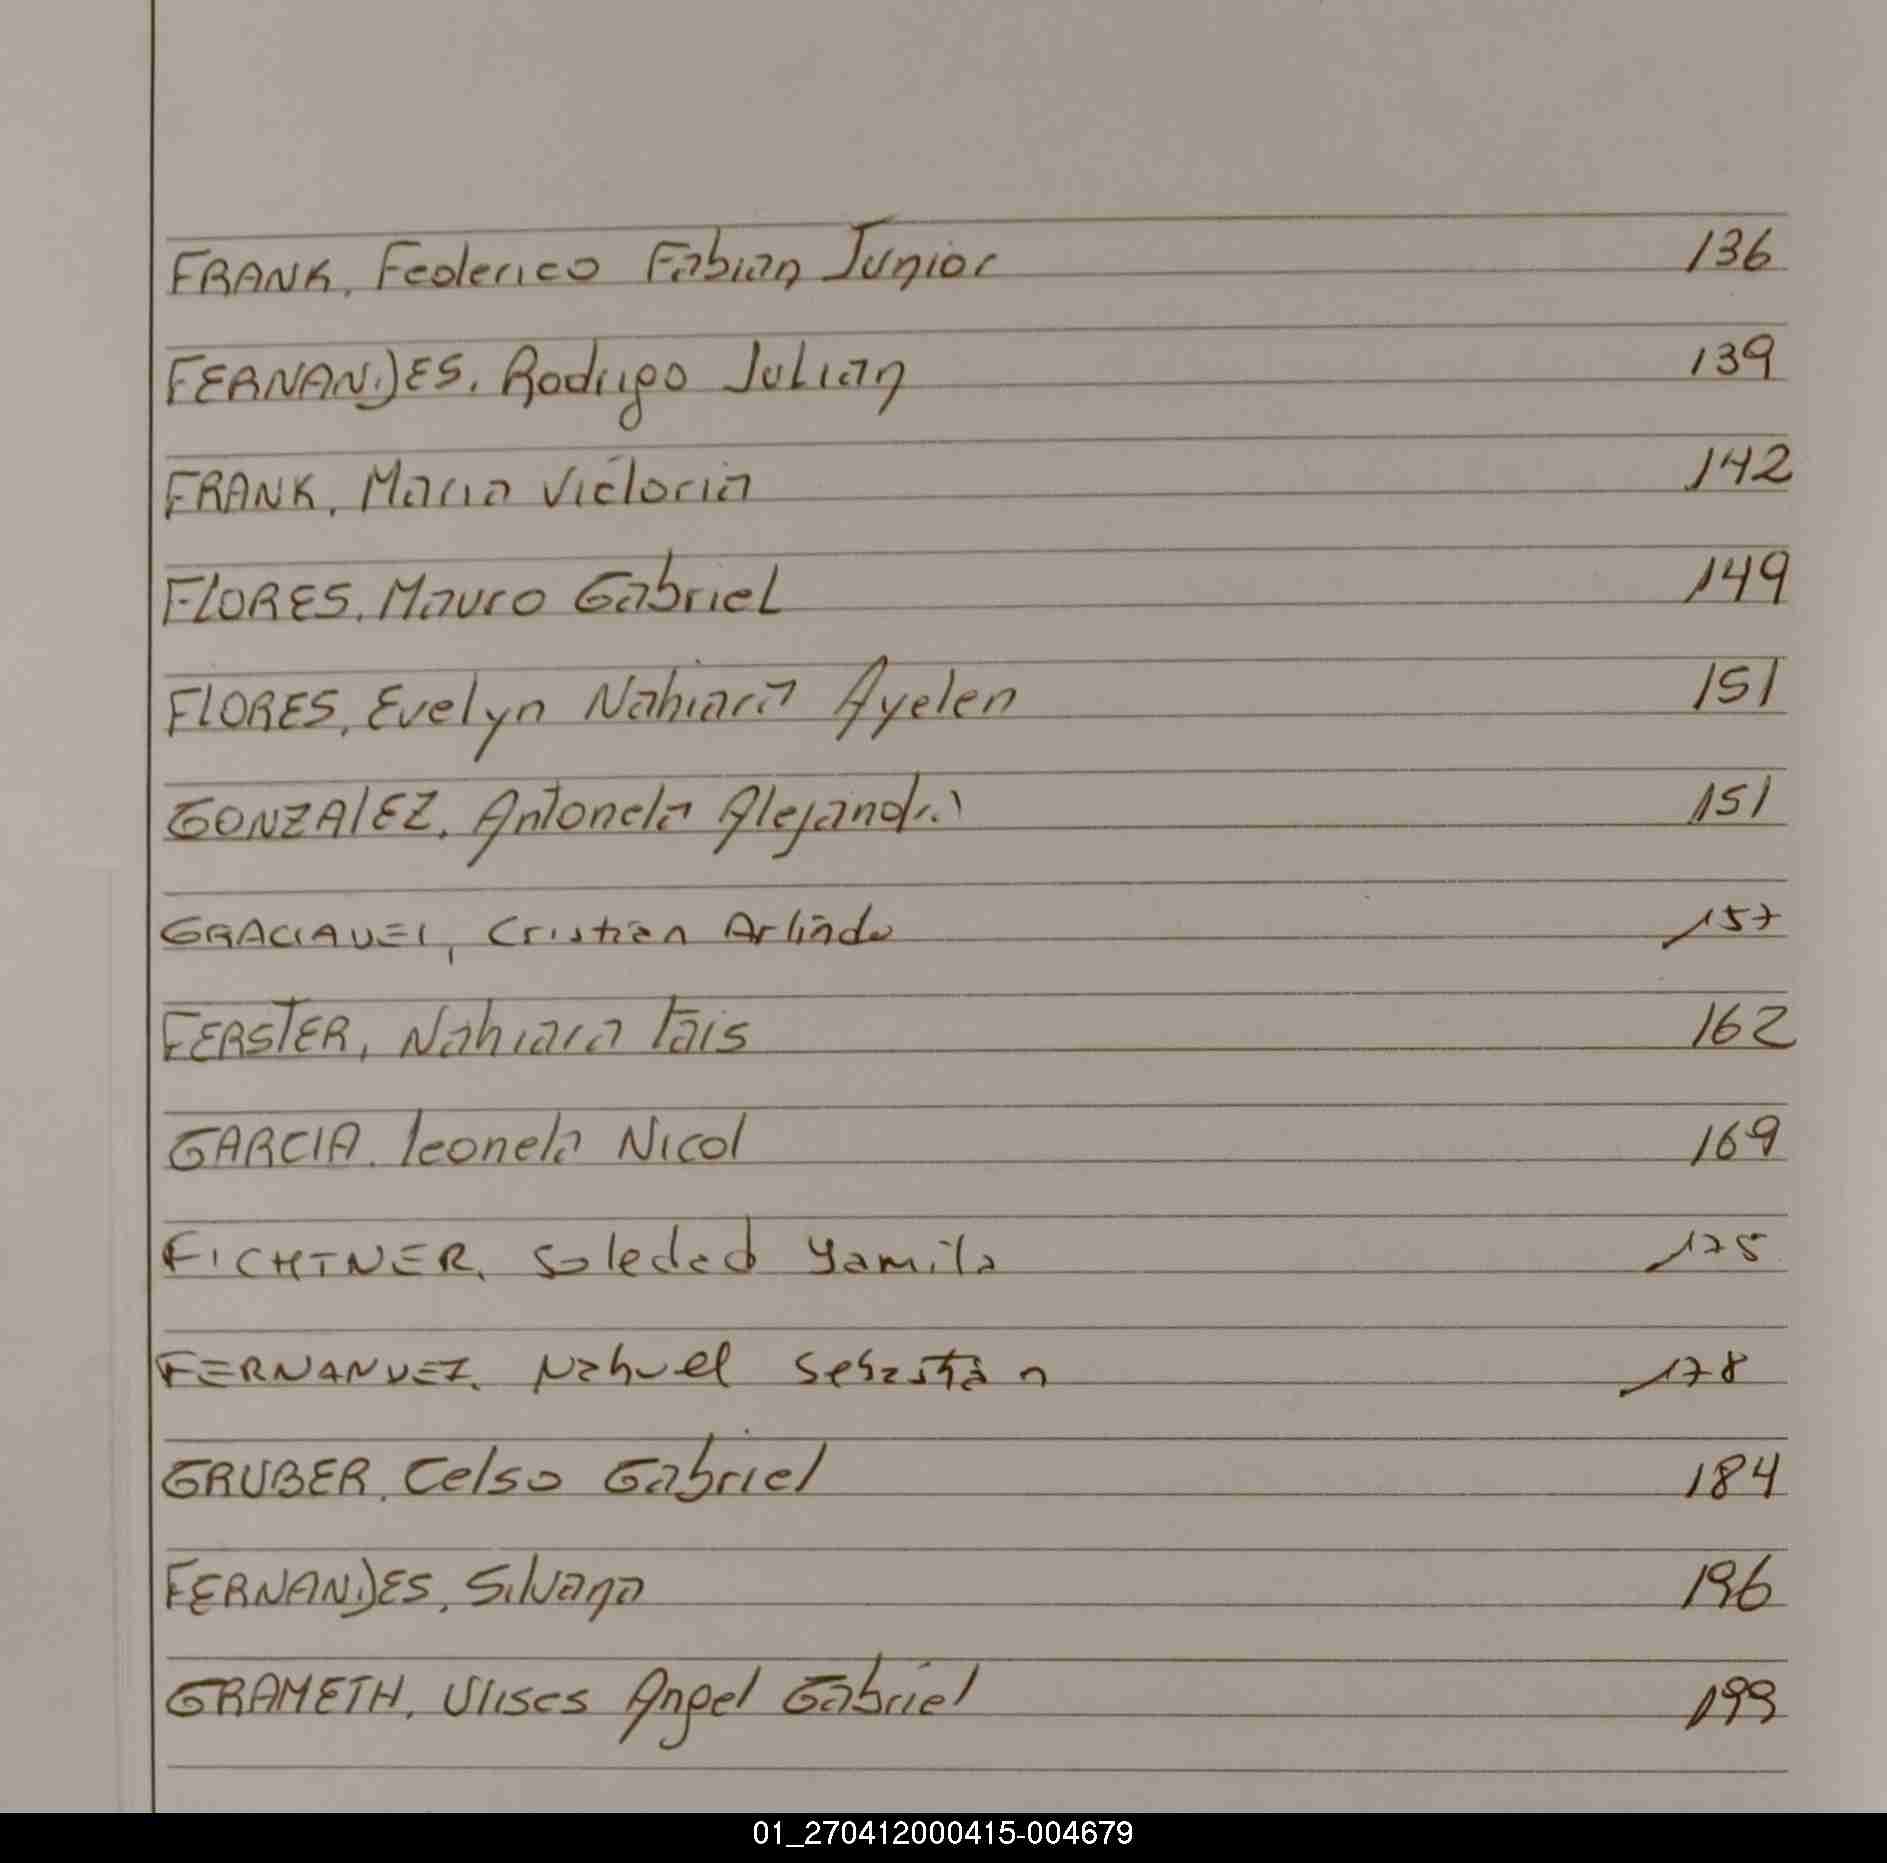 FRANK, Federico Fabian Junior 136
FERNANDES, Rodrigo Julian 139
FRANK, Maria Victoria 142
FLORES, Mauro Gabriel 149
FLORES, Evelyn Nahiara Ayelen 151
GONZALEZ, Antonela Alejandra 151
Cristian Arlindo 157
FERSTER, Nahiara Tais 162
GARCIA, Leonela Nicol 169
FICHTNER, Soledad Yamila 175
FERNANDEZ, Nahuel Sebastian 178
GRUBER, Celso Gabriel 184
FERNANDES, Silvana 196
GRAMETH, Ulises Angel Gabriel 199
01_270412000415-004679